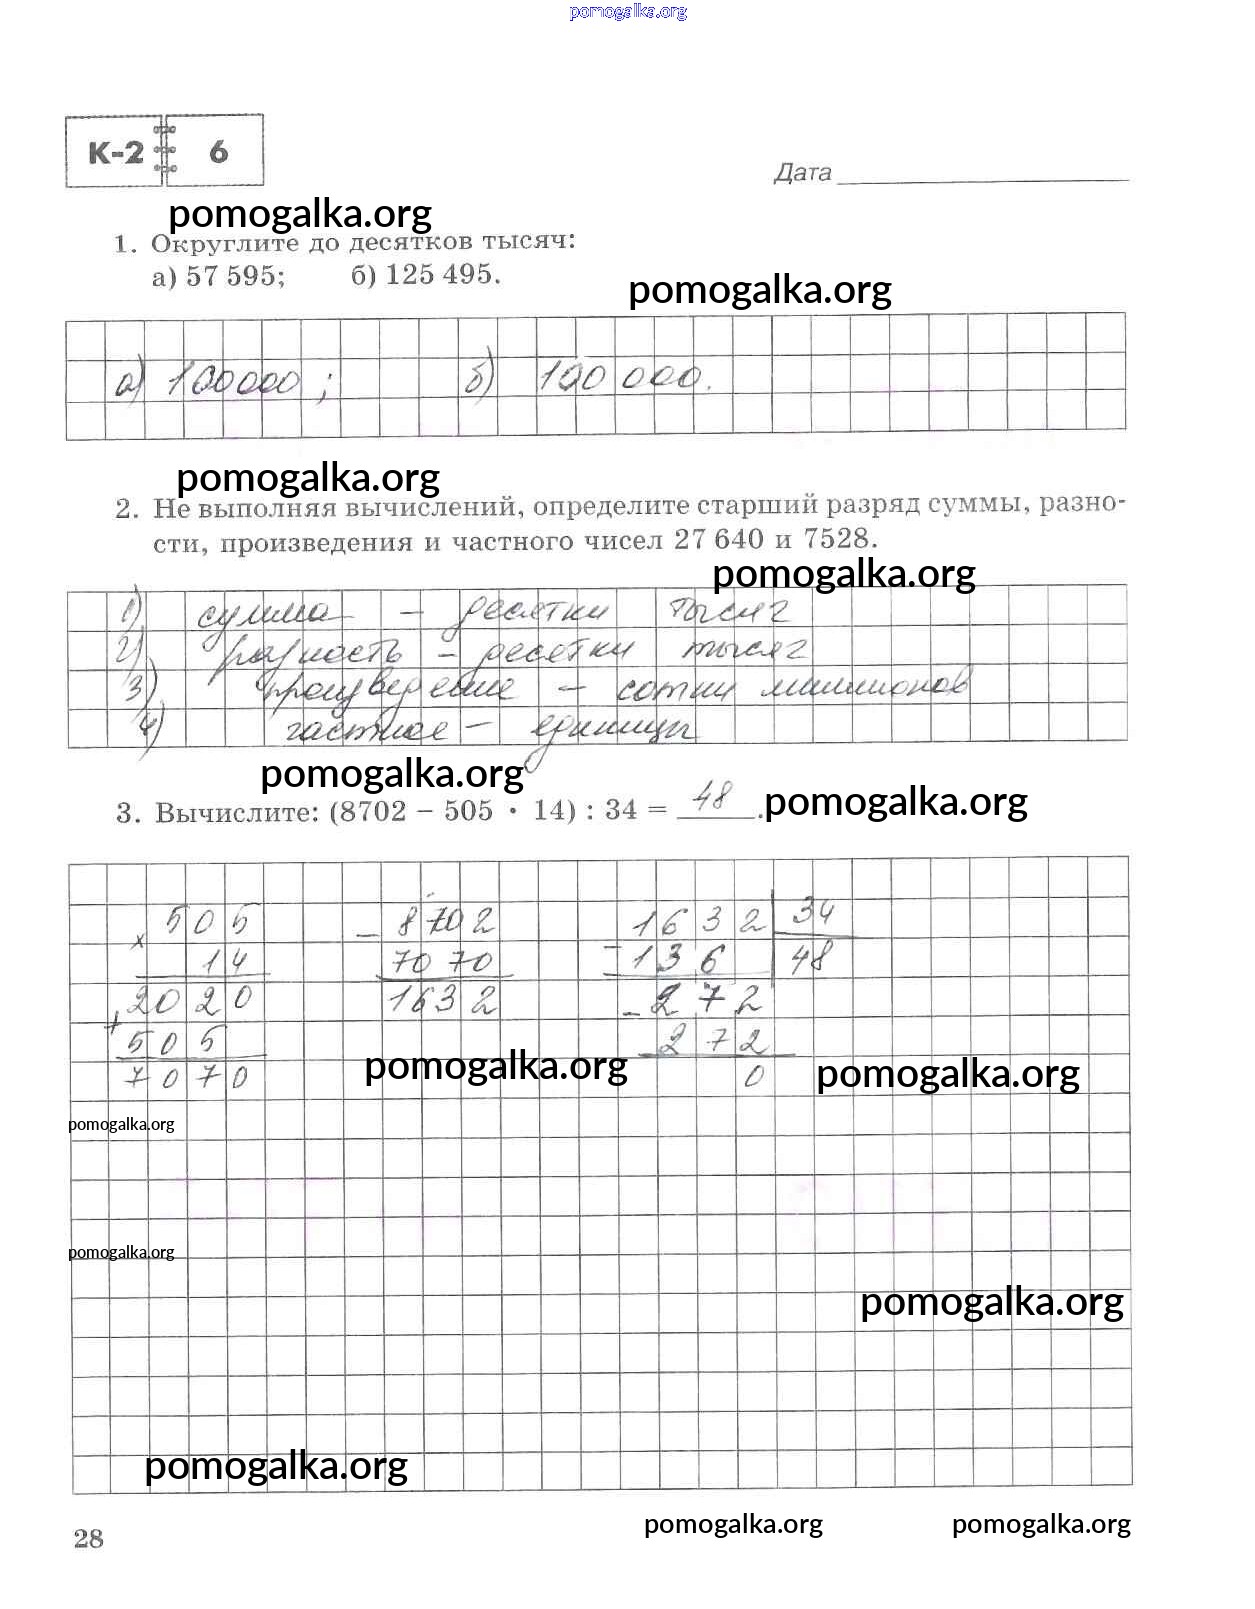 pomogalka.org
К-2 6
Дата
pomogalka.org
1. Округлите до десятков тысяч:
а) 57 595; б) 125 495.
pomogalka.org
а) 100000 ; б) 100 000.
pomogalka.org
2. Не выполняя вычислений, определите старший разряд суммы, разно-
сти, произведения и частного чисел 27 640 и 7528.
pomogalka.org
1) сумма – десятки тысяч
2) разность – десятки тысяч
3) произведение – сотни миллионов
4) частное – единицы
pomogalka.org
3. Вычислите: (8702 – 505 · 14) : 34 = 48.
pomogalka.org
505 – 8702 1632 34
× 14 7070 – 136 48
2020 1632 – 272
+ 505 272
7070 0
pomogalka.org
pomogalka.org
pomogalka.org
pomogalka.org
pomogalka.org
pomogalka.org
28
pomogalka.org
pomogalka.org